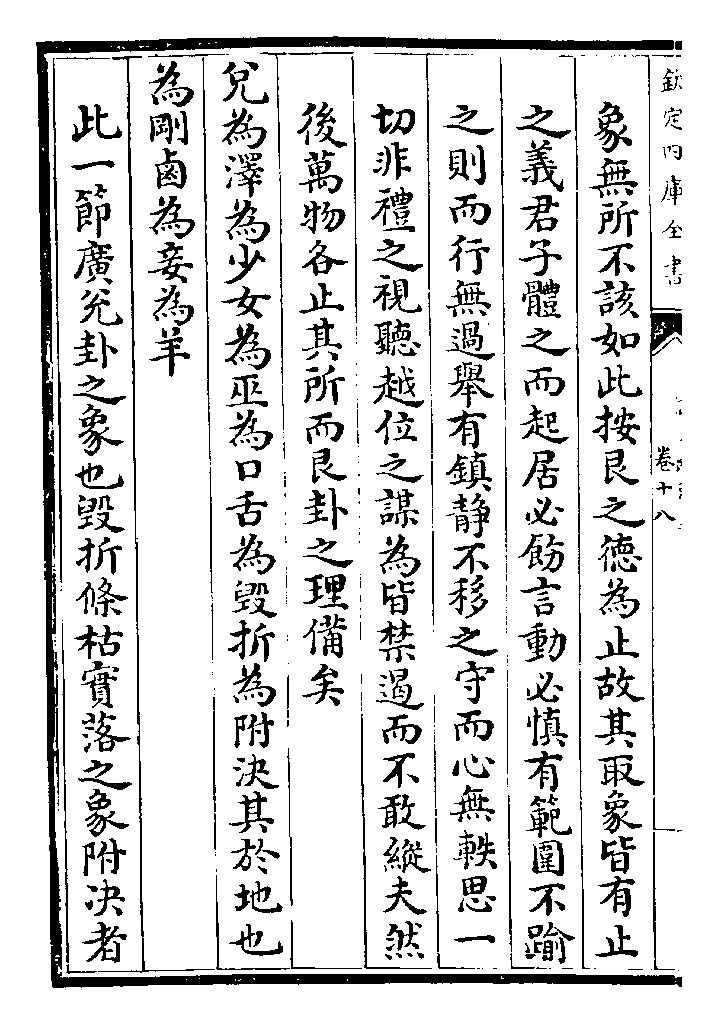 欽定四庫全書
卷十八
象無所不該如此按艮之德為止故其取象皆有止
之義君子體之而起居必飭言動必慎有範圍不踰
之則而行無過舉有鎮静不移之守而心無軼思一
切非禮之視聽越位之謀為皆禁遏而不敢縱夫然
後萬物各止其所而艮卦之理備矣
兑為澤為少女為巫為口舌為毁折為附決其於地也
為剛鹵為妾為羊
此一節廣兑卦之象也毁折條枯實落之象附决者